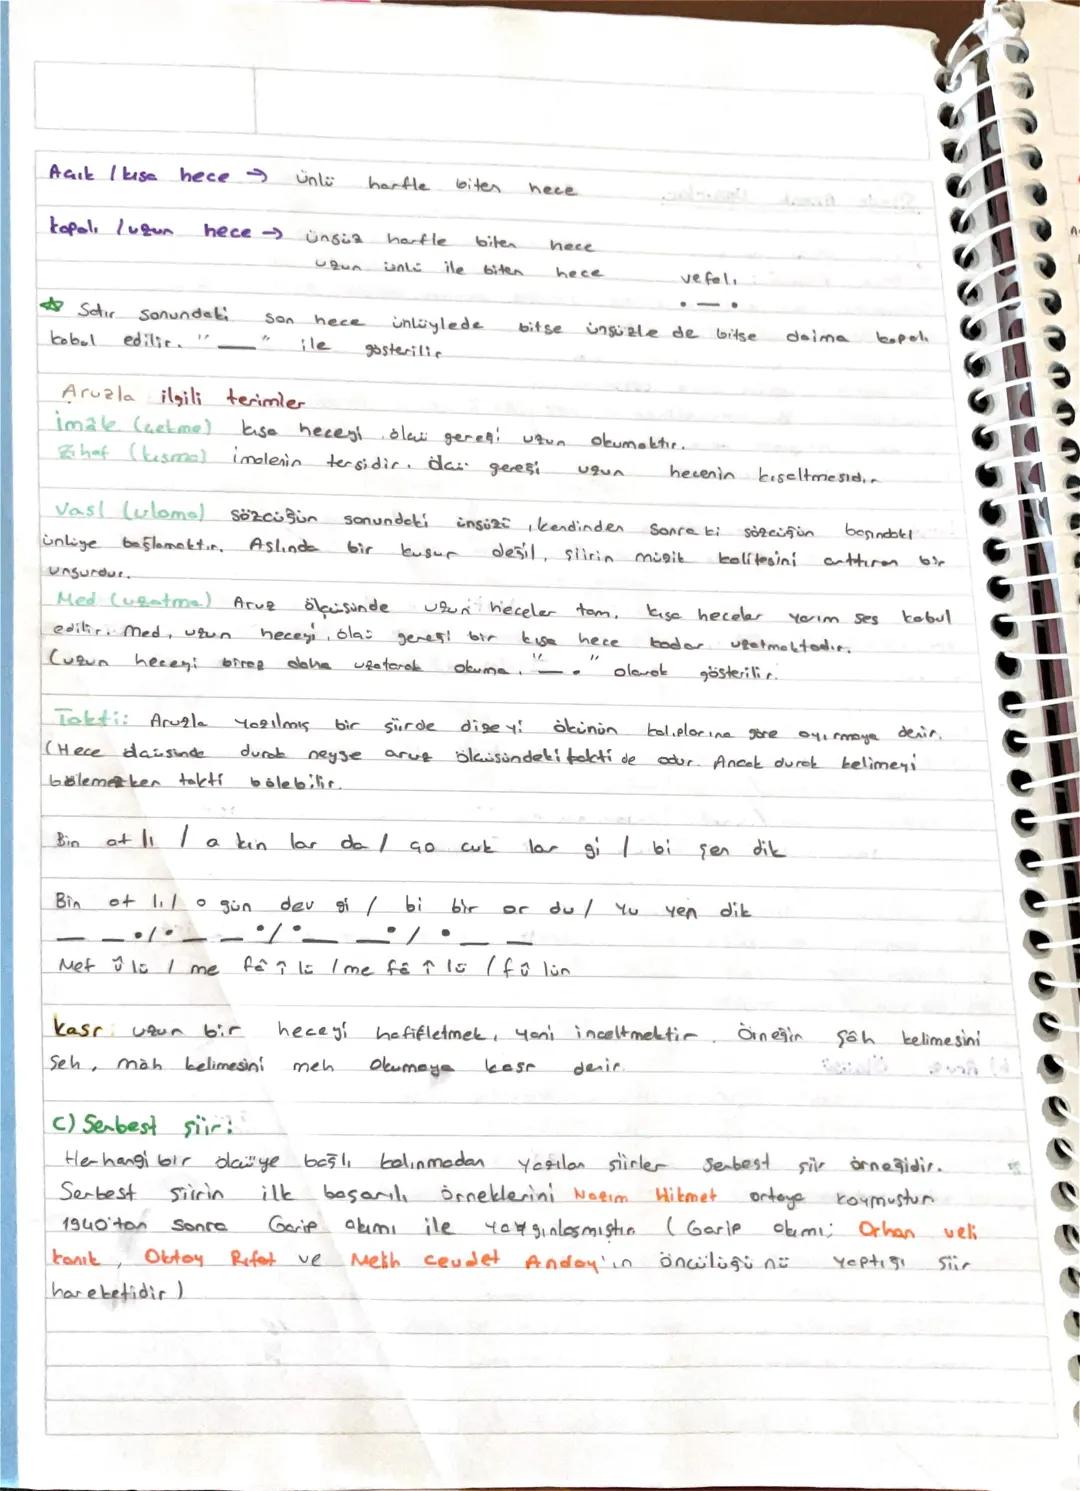 Açık / kısa hece → ünlü harfle biten hece
kapalı / uzun hece → ünsüz harfle biten hece
uzun ünlü ile biten hece
vefalı
. — .
☆ Satır sonundaki son hece ünlüylede bitse ünsüzle de bitse daima kapalı
kabul edilir. " — " ile gösterilir
Aruzla ilgili terimler
imâle (çekme) kısa heceyi ölçü gereği uzun okumaktır.
Zihaf (kısma) imalenin tersidir. ölçü gereği uzun hecenin kısaltmesıdır
Vasl (ulama) sözcüğün sonundaki ünsüzü, kendinden sonraki sözcüğün başındaki
ünlüye bağlamaktır. Aslında bir kusur değil, şiirin müzik kalitesini arttıran bir
unsurdur.
Med (uzatma) Aruz ölçüsünde uzun heceler tam, kısa heceler yarım ses kabul
edilir. Med, uzun heceyi, ölçü gereği bir kısa hece kadar uzatmaktadır.
(uzun heceyi biraz daha uzatarak okuma, " — . " olarak gösterilir.
Takti: Aruzla yazılmış bir şiirde dizeyi ölçünün kalıplarına göre ayırmaya denir.
(Hece ölçüsünde durak neyse aruz ölçüsündeki takti de odur. Ancak durak kelimeyi
bölemezken takti bölebilir.
Bin at lı / a kın lar da / ço cuk lar gi / bi şen dik
Bin at lı / o gün dev gi / bi bir or du / yu yen dik
— — . / . — — . / . — — . / . — —
Mef û lü / me fâ î lü / me fâ î lü / fû lün
kasr: uzun bir heceyi hafifletmek, yani inceltmektir. Örneğin şâh kelimesini
Şeh, mâh kelimesini meh Okumaya kasr denir.
C) Serbest şiir:
Herhangi bir ölçüye bağlı kalınmadan yazılan şiirler serbest şiir örneğidir.
Serbest şiirin ilk başarılı örneklerini Nazım Hikmet ortaya koymuştur
1940'tan sonra Garip akımı ile yaygınlaşmıştır (Garip akımı; Orhan veli
kanık, Oktay Rıfat ve Melih cevdet Anday'ın öncülüğünü yaptığı şiir
hareketidir)